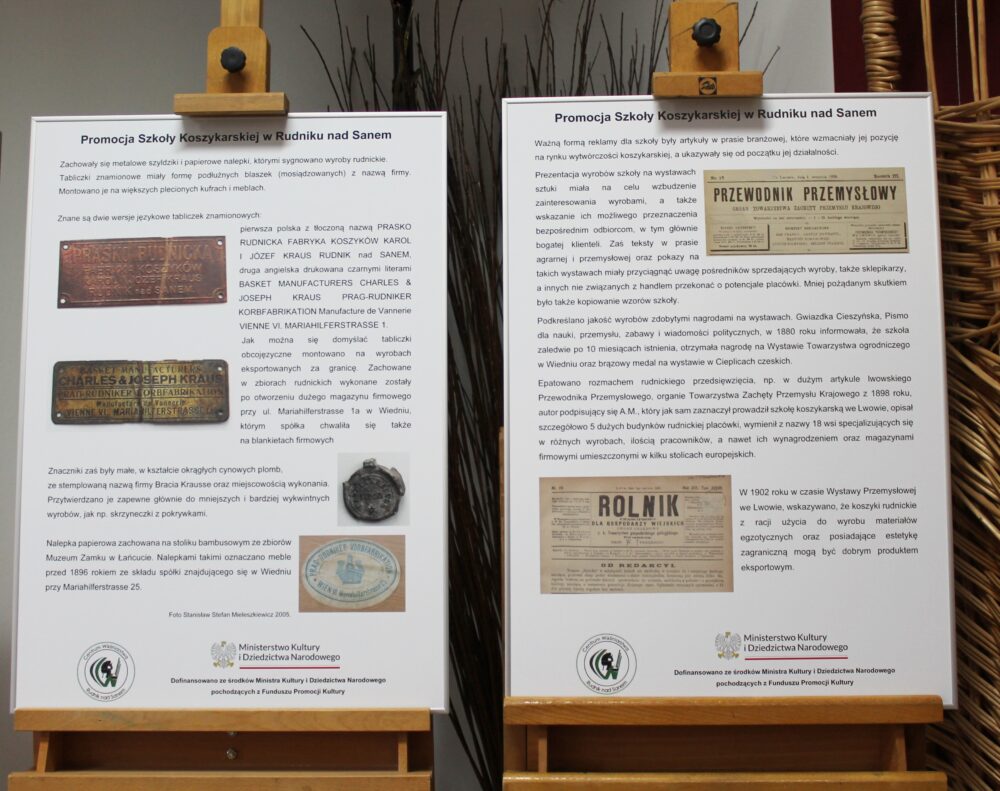 Promocja Szkoły Koszykarskiej w Rudniku nad Sanem
Zachowały się metalowe szyldziki i papierowe nalepki, którymi sygnowano wyroby rudnickie.
Tabliczki znamionowe miały formę podłużnych blaszek (mosiądzowanych) z nazwą firmy.
Montowano je na większych plecionych kufrach i meblach.
Znane są dwie wersje językowe tabliczek znamionowych:
pierwsza polska z tłoczoną nazwą PRASKO
RUDNICKA FABRYKA KOSZYKÓW KAROL
I JÓZEF KRAUS RUDNIK nad SANEM,
druga angielska drukowana czarnymi literami
BASKET MANUFACTURERS CHARLES &
JOSEPH KRAUS PRAG-RUDNIKER
KORBFABRIKATION Manufacture de Vannerie
VIENNE VI. MARIAHILFERSTRASSE 1.
Jak można się domyślać tabliczki
obcojęzyczne montowano na wyrobach
eksportowanych za granicę. Zachowane
w zbiorach rudnickich wykonane zostały
po otworzeniu dużego magazynu firmowego
przy ul. Mariahilferstrasse 1a w Wiedniu,
którym spółka chwaliła się także
na blankietach firmowych
RUDNIK nad SANEM.
BASKET MANUFACTURERS
CHARLES & JOSEPH KRAUS
PRAG-RUDNIKER KORBFABRIKATION
Manufacture de Vannerie
VIENNE VI. MARIAHILFERSTRASSE
Znaczniki zaś były małe, w kształcie okrągłych cynowych plomb,
ze stemplowaną nazwą firmy Bracia Krausse oraz miejscowością wykonania.
Przytwierdzano je zapewne głównie do mniejszych i bardziej wykwintnych
wyrobów, jak np. skrzyneczki z pokrywkami.
Nalepka papierowa zachowana na stoliku bambusowym ze zbiorów
Muzeum Zamku w Łańcucie. Nalepkami takimi oznaczano meble
przed 1896 rokiem ze składu spółki znajdującego się w Wiedniu
przy Mariahilferstrasse 25.
Foto Stanisław Stefan Mieleszkiewicz 2005.
Centrum Wikliniarstwa
Rudnik nad Sanem
Ministerstwo Kultury
i Dziedzictwa Narodowego
Dofinansowano ze środków Ministra Kultury i Dziedzictwa Narodowego
pochodzących z Funduszu Promocji Kultury
Promocja Szkoły Koszykarskiej w Rudniku nad Sanem
Ważną formą reklamy dla szkoły były artykuły w prasie branżowej, które wzmacniały jej pozycję
na rynku wytwórczości koszykarskiej, a ukazywały się od początku jej działalności.
Prezentacja wyrobów szkoły na wystawach
sztuki miała na celu wzbudzenie
zainteresowania wyrobami, a także
wskazanie ich możliwego przeznaczenia
bezpośrednim odbiorcom, w tym głównie
bogatej klienteli. Zaś teksty w prasie
agrarnej i przemysłowej oraz pokazy na
takich wystawach miały przyciągnąć uwagę pośredników sprzedających wyroby, także sklepikarzy,
a innych nie związanych z handlem przekonać o potencjale placówki. Mniej pożądanym skutkiem
było także kopiowanie wzorów szkoły.
PRZEWODNIK PRZEMYSŁOWY
ORGAN TOWARZYSTWA ZACHĘTY PRZEMYSŁU KRAJOWEGO
Podkreślano jakość wyrobów zdobytymi nagrodami na wystawach. Gwiazdka Cieszyńska, Pismo
dla nauki, przemysłu, zabawy i wiadomości politycznych, w 1880 roku informowała, że szkoła
zaledwie po 10 miesiącach istnienia, otrzymała nagrodę na Wystawie Towarzystwa ogrodniczego
w Wiedniu oraz brązowy medal na wystawie w Cieplicach czeskich.
Epatowano rozmachem rudnickiego przedsięwzięcia, np. w dużym artykule lwowskiego
Przewodnika Przemysłowego, organie Towarzystwa Zachęty Przemysłu Krajowego z 1898 roku,
autor podpisujący się A.M., który jak sam zaznaczył prowadził szkołę koszykarską we Lwowie, opisał
szczegółowo 5 dużych budynków rudnickiej placówki, wymienił z nazwy 18 wsi specjalizujących się
w różnych wyrobach, ilością pracowników, a nawet ich wynagrodzeniem oraz magazynami
firmowymi umieszczonymi w kilku stolicach europejskich.
ROLNIK
DLA GOSPODARZY WIEJSKICH
OD REDAKCYI.
W 1902 roku w czasie Wystawy Przemysłowej
we Lwowie, wskazywano, że koszyki rudnickie
z racji użycia do wyrobu materiałów
egzotycznych oraz posiadające estetykę
zagraniczną mogą być dobrym produktem
eksportowym.
Centrum Wikliniarstwa
Rudnik nad Sanem
Ministerstwo Kultury
i Dziedzictwa Narodowego
Dofinansowano ze środków Ministra Kultury i Dziedzictwa Narodowego
pochodzących z Funduszu Promocji Kultury